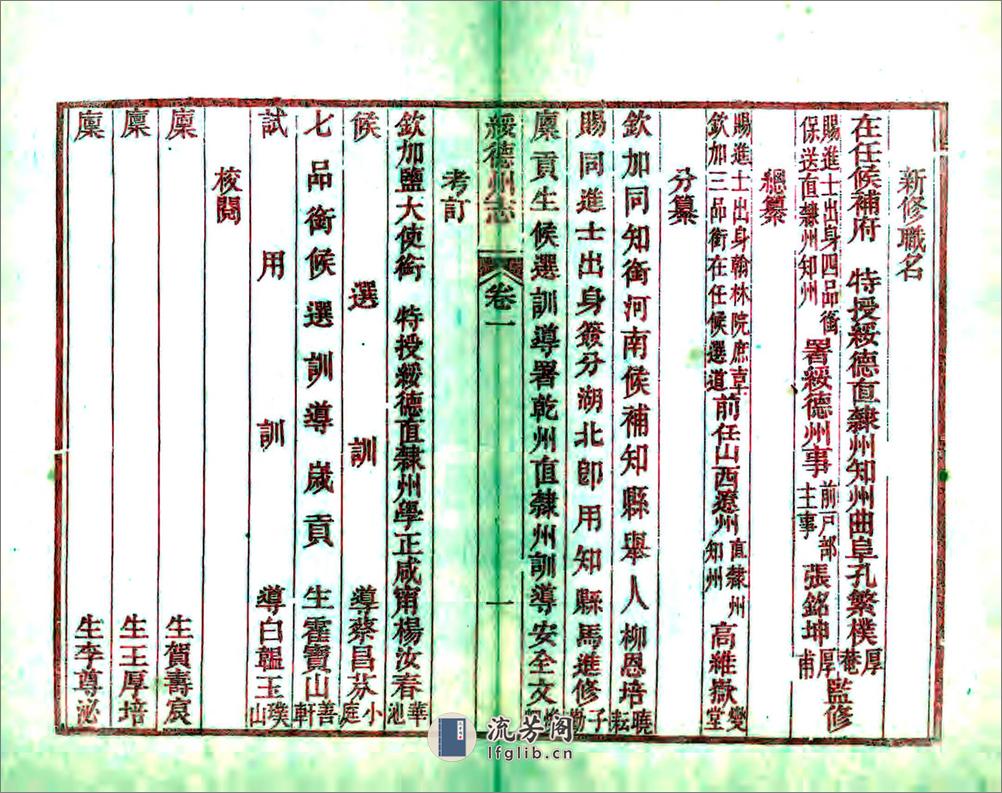 新修職名
在任候補府 特授綏德直隸州知州曲阜孔繁樸厚菴監修
賜進士出身四品銜保送直隸州知州署綏德州事前戶部主事張銘坤厚甫
總纂
賜進士出身翰林院庶吉欽加三品銜在任候選道前任山西遼州直隸州知州高維嶽燮堂
分纂
欽加同知銜河南候補知縣舉人柳恩培曉耘
賜同進士出身簽分湖北卽用知縣馬進修子勤
廩貢生候選訓導署乾州直隸州訓導安全文
綏德州志 卷一 一
考訂
欽加鹽大使銜 特授綏德直隸州學正咸甯楊汝春華池
候選訓導蔡昌芬小庭
七品銜候選訓導歲貢生霍寶山善軒
試用訓導白韞玉璞山
校閱
廩生賀壽宸
廩生王厚培
廩生李尊泌
流芳阁
lfglib.cn